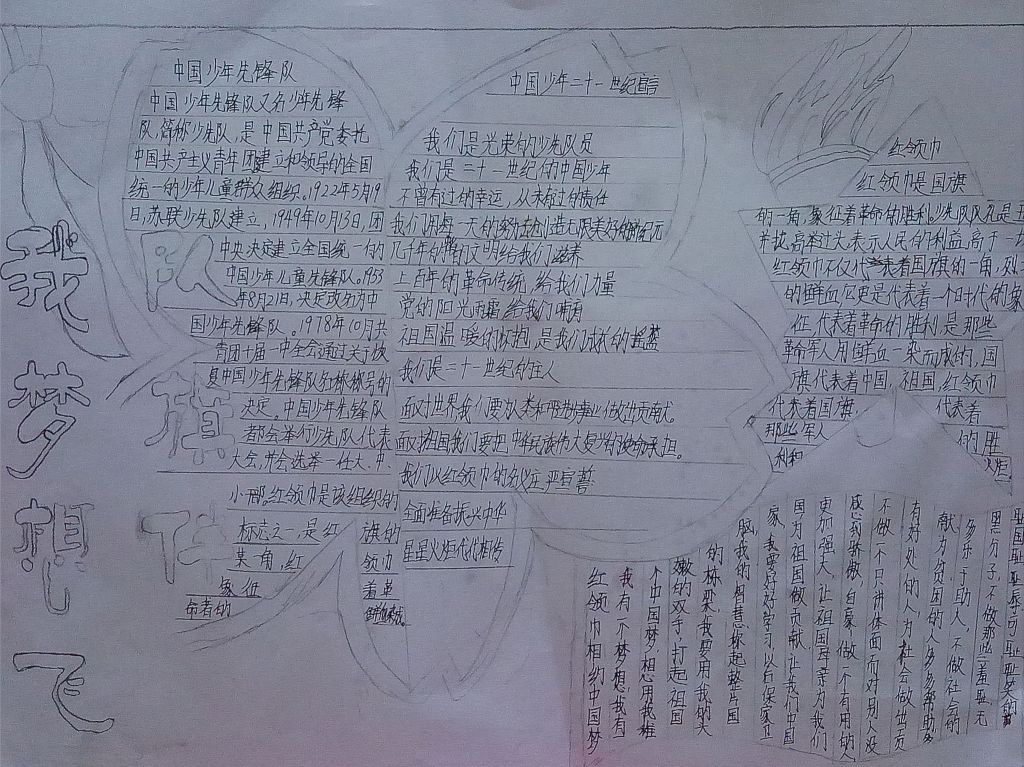 我梦想飞
队旗伴
中国少年先锋队
中国少年先锋队又名少年先锋
队,简称少先队,是中国共产党委托
中国共产主义青年团建立和领导的全国
统一的少年儿童群众组织。1922年5月19
日,苏联少先队建立,1949年10月13日,团
中央决定建立全国统一的
中国少年儿童先锋队。1953
年8月21日,决定改为中
国少年先锋队。1978年10月共
青团十届一中全会通过关于恢
复中国少年先锋队名称称号的
决定。中国少年先锋队
都会举行少先队代表
大会,并会选举一任大、中、
小部。红领巾是该组织的
标志之一,是红旗的
某一角,红领巾
象征着革
命者的鲜血染成。
中国少年二十一世纪宣言
我们是光荣的少先队员
我们是二十一世纪的中国少年
不曾有过的幸运,从未有过的责任
我们用每一天的努力去创造无限美好的新纪元
几千年的辉煌文明给我们滋养
上百年的革命传统,给我们力量
党的阳光雨露,给我们哺育
祖国温暖的怀抱,是我们成长的摇篮
我们是二十一世纪的主人
面对世界我们要为人类和平进步事业做出贡献。
面对祖国我们要把中华民族伟大复兴的使命承担。
我们以红领巾的名义庄严宣誓
全面准备振兴中华
星星火炬代代相传
红领巾
红领巾是国旗
的一角,象征着革命的胜利。少先队队礼是五
并拢,高举过头,表示人民的利益高于一切
红领巾不仅代表着国旗的一角,烈士
的鲜血,它更是代表着一个时代的象
征,代表着革命的胜利,是那些
革命军人用鲜血一染而成的,国
旗代表着中国,祖国,红领巾
代表着国旗,代表着
那些军人的胜
利和
红领巾相约中国梦
我有一个梦想,我有
个中国梦,想用我稚
嫩的双手,打起祖国
的栋梁,我要用我的大
脑,我的智慧撑起整片国
家,我要好好学习,以后保家卫
国为祖国做贡献,让我们中国
更加强大,让祖国母亲为我们
感到骄傲,自豪,做一个有用的人
不做一个只讲体面而对别人没
有好处的人,为社会做贡
献,为贫困的人多多帮助
多乐于助人,不做社会的
黑分子,不做那些羞耻,无